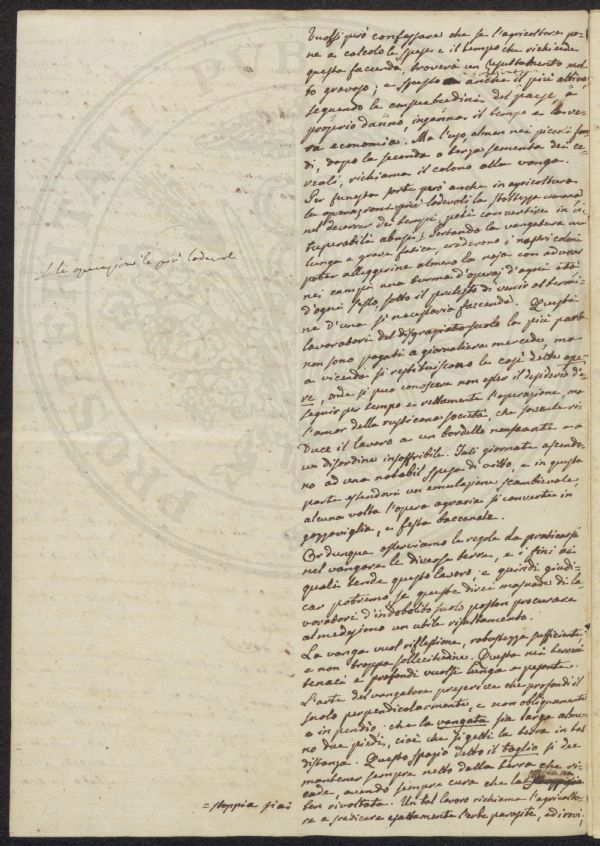 Vuolsi però confessare che se l'agricoltore po=
ne a calcolo le spese e il tempo che richiede
questa faccenda, troverà un resultamento mol=
to gravoso; e spesso anche il più attivo
seguendo le consuetudini del paese, a
proprio danno, inganna il tempo e la ve=
ra economia. Ma l'uso, almen nei piccoli fon=
di, dopo la seconda o terza sementa dei ce=
reali, richiama il colono alla vanga.
Per funesta sorte però anche in agricoltura
le operazioni più lodevoli la stoltezza umana
nel decorrer dei tempi, potè convertire in vi=
tuperabili abusi; Portando la vangatura
lunga e grave fatica, crederono i nostri coloni
poter alleggerirne almeno la noja con adunar
nei campi una turma d'operaj d'ogni età
d'ogni sesso, sotto il pretesto di venir al termi=
ne d'una sì necessaria faccenda. Questi
lavoratori del disgraziato suolo la più parte
non sono pagati a giornaliera mercede, ma
a vicenda si restituiscono le così dette ope=
re, onde si può conoscere non esser il desiderio d'e=
seguir per tempo e rettamente l'operazione, ma
l'amor della rusticana società, che sovente ri=
duce il lavoro a un bordello nauseante e a
un disordine insoffribile. Tali giornate ascendo=
no ad una notabil spesa di vitto, e in questa
parte essendovi un emulazione scambievole,
alcuna volta l'opera agraria si converte in
gozzoviglia, e festa baccanale.
Or dunque osserviamo le regole da praticarsi
nel vangare le diverse terre, e i fini ai
quali tende questo lavoro; e quindi giudi=
car potremo se queste dieci masnade di la=
voratori d'indebolito suolo posson procurare
al medesimo un utile risultamento.
La vanga vuol riflessione, robustezza sufficiente
e non troppa sollecitudine. Questa nei terreni
tenaci e profondi vuolsi lunga e pesante.
L'arte del vangatore preferisce che profondi il
suolo perpendicolarmente, e non obliquamente
o in pendio: che la vangata sia larga alme=
no due piedi, cioè che si getti la terra in tal
distanza. Questo spazio detto il taglio si dee
mantener sempre netto dalla terra che ri=
cade, avendo sempre cura che la
ben rivoltata. Un tal lavoro richiama l'agricolto=
re a sradicare esattamente l'erbe parasite, ed i rovi,
le operazioni le più lodevol
= stoppia sia: